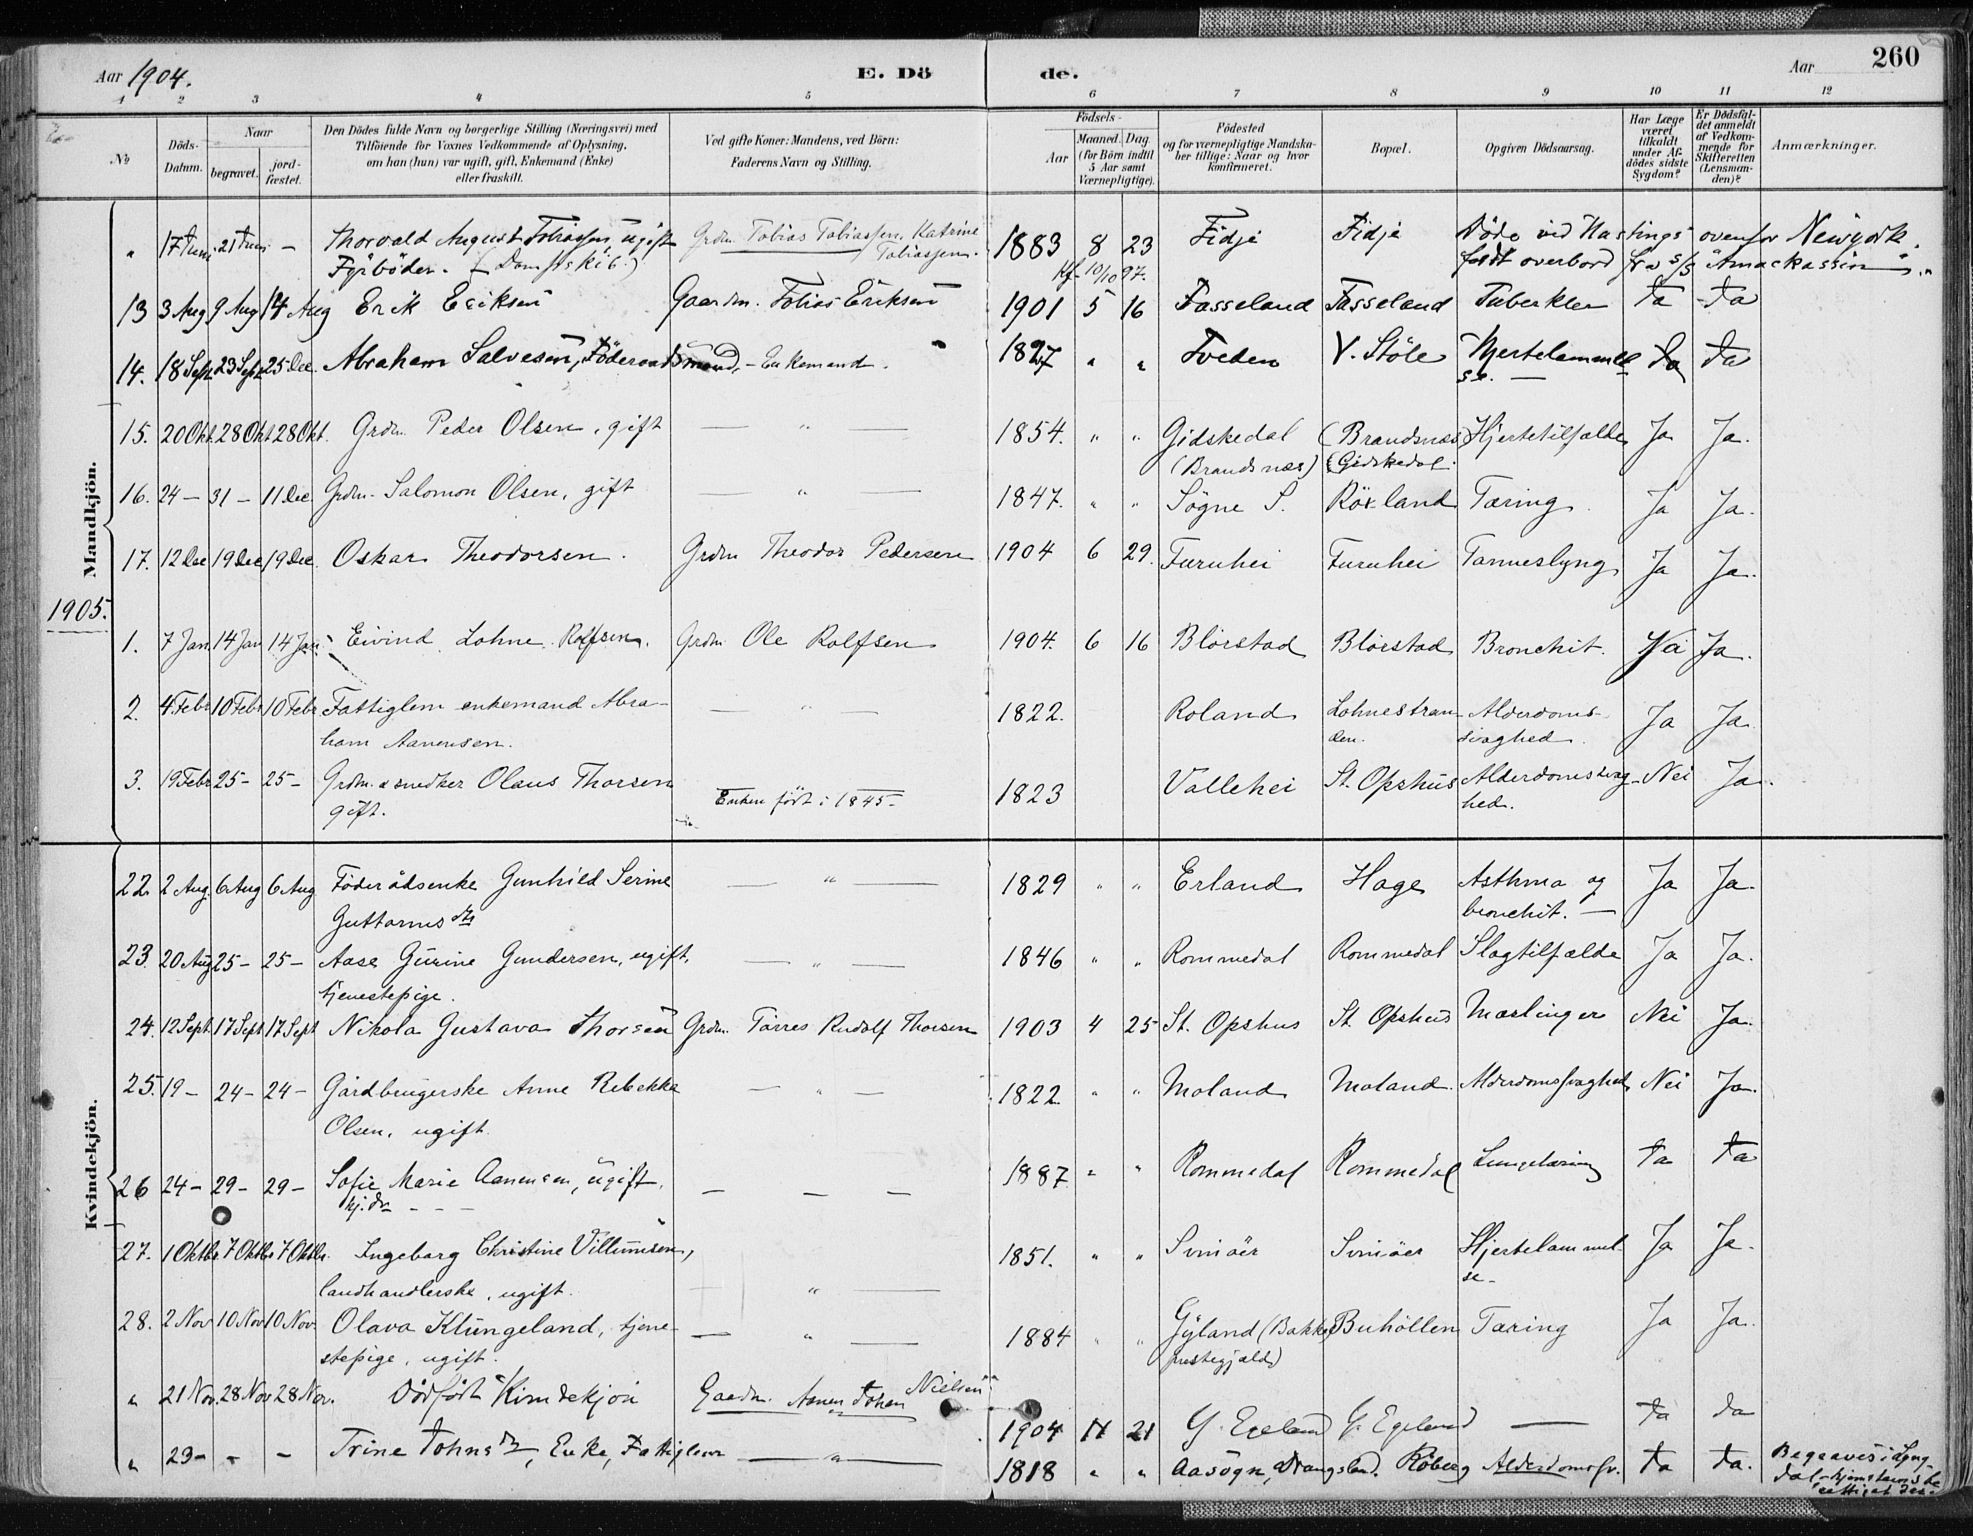 Aar 1904. E. Döde. Aar 260
1 2 3 4 5 6 7 8 9 10 11 12
No
Döds-Datum.
Naar
begravet.
jord-fæstet.
Den Dödes fulde Navn og borgerlige Stilling (Næringsvei) med
Tilföiende for Voxnes Vedkommende af Oplysning,
om han (hun) var ugift, gift, Enkemand (Enke)
eller fraskilt.
Ved gifte Koner: Mandens, ved Börn:
Faderens Navn og Stilling.
Födsels-
Aar
Maaned. Dag
(for Börn indtil
5 Aar samt
Værnepligtige).
Födested
og for værnepligtige Mandska-
ber tillige: Naar og hvor
konfirmeret.
Bopæl.
Opgiven Dödsaarsag.
Har Læge
været
tilkaldt
under Af-
dödes sidste
Sygdom?
Er Dödsfal-
det anmeldt
af Vedkom-
mende for
Skifteretten
(Lensman-
den)?
Anmærkninger.
Mandkjön.
" 17 Juni 21 Juni - Thorvald August Tobiassen, ugift Grdm. Tobias Tobiassen, Katrine 1883 8 23 Fidje Fidje Döde ved Hastings ovenfor Newyork,
Fyrböder. (Dampskib.) Tobiassen. Kf. 10/10 97. faldt overbord fra s/s
13 3 Aug 9 Aug 14 Aug Erik Eriksen Gaardm. Tobias Eriksen 1901 5 16 Fasseland Fasseland Tuberkler Ja Ja
14. 18 Sept 23 Sept 25 Dec Abraham Salvesen, Föderaadsmand, - Enkemand. 1827 " " Tveden V. Stöle Hjertelammel- Ja Ja
se. —
15. 20 Okt. 28 Okt 28 Okt. Grdm. Peder Olsen, gift — " — 1854. " " Gidskedal (Brandsnæs Hjertetilfælde Ja Ja.
(Brandsnæs) (Gidskedal.
16. 24 - 31 - 11 Dec. Grdm. Salomon Olsen, gift — " — 1847. " " Søgne S. Röxland Tæring. Ja Ja.
17. 12 Dec 19 Dec 19 Dec. Oskar Theodorsen. Grdm Theodor Pedersen 1904 6 29. Furuhei Furuhei Ja Ja.
1905.
1. 7 Jan. 14 Jan 14 Jan. Eivind Lohne Rolfsen. Grdm Ole Rolfsen 1904. 6 16 Blörstad Blörstad Bronchit. Ja Ja.
2. 4. Febr 10 Febr 10 Febr Fattiglem enkemand Abra- — " — 1822. Roland Lohnestran- Alderdoms- Ja Ja.
ham Aanensen. den. svaghed.
3. 19 Febr 25 - 25 - Grdm. & snedker Olaus Thorsen Enken född i 1845 - 1823 Vallehei St. Opshus Alderdomssvag- Nei Ja.
gift. hed.
Kvindekjön.
22. 2 Aug. 6 Aug 6 Aug Föderådsenke Gunhild Serine — " — 1829 " " Erland Hage Asthma og Ja Ja.
Guttormsdtr bronchit. —
23. 20 Aug 25 - 25 - Aase Gurine Gundersen, ugift, — " — 1846 " " Rommedal Rommedal Slagtilfælde Ja Ja.
tjenestepige.
24. 12 Sept. 17 Sept. 17 Sept. Nikola Gustava Thorsen Grdm. Tørres Rudolf Thorsen 1903 4 25 St. Opshus St. Opshus Mæslinger Nei Ja.
25. 19 - 24 - 24 - Gårdbrugerske Anne Rebekka — " — 1822 " " Moland Moland. Alderdomssvaghed Nei Ja.
Olsen, ugift.
26 24 - 29 - 29 - Sofie Marie Aanensen, ugift, — — — 1887 " " Rommedal Rommedal Lungetæring Ja Ja
27. 1 Oktbr 7 Oktbr 7 Oktbr. Ingeborg Christine Villumsen, 1851. " " Svinöer Svinöer Hjertelammel- Ja Ja.
landhandlerske, ugift. — " — se -
28. 2 Nov. 10 Nov 10 Nov. Olava Klungeland, tjene- — " — 1884 " " Gyland (Bakke Buhöllen Tæring Ja Ja.
stepige, ugift. prestegjæld)
" 21 Nov. 28 Nov 28 Nov. Dödfödt Kvindekjön Gaardm. Aanen Johan Nielsen 1904 11 21 Y. Egeland Y. Egeland — Ja Ja
" 23 - - - Trine Johnsdtr, Enke, Fattiglem — " — 1818 " " Aasogn, Drangsland. Röberg Alderdomssv. Ja Ja. Begraves i Lyng-
dal - hjemstavns-